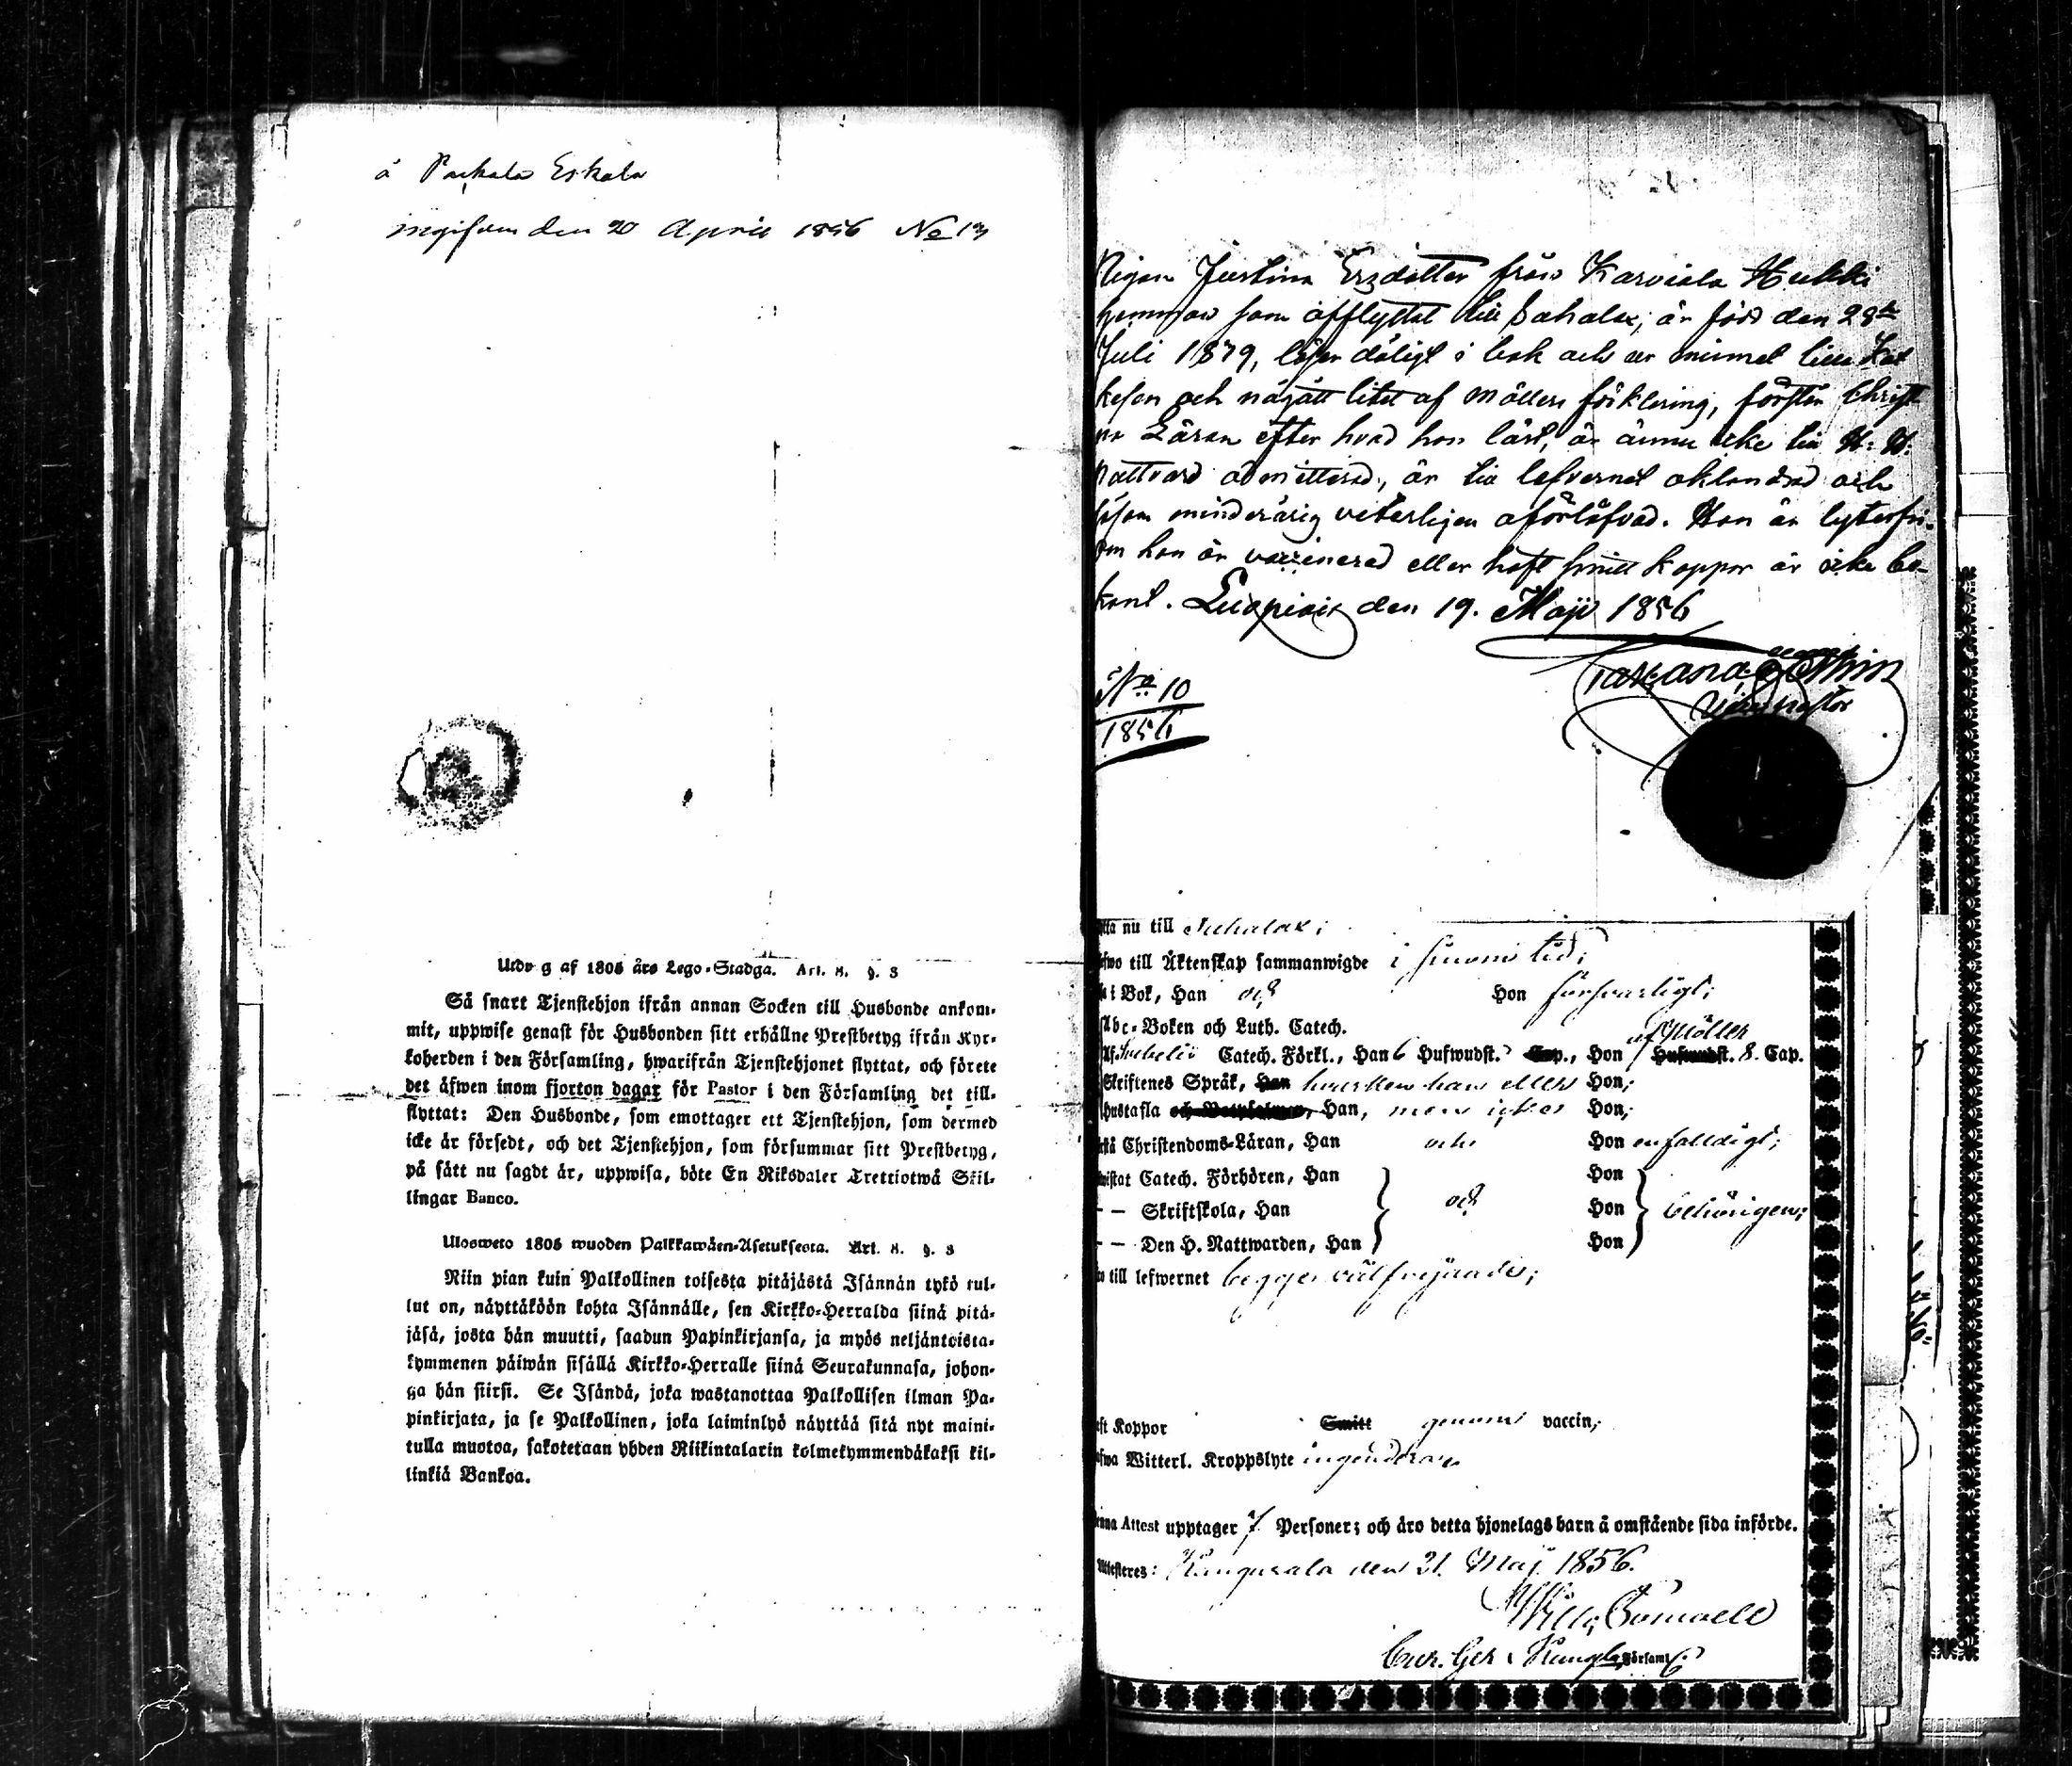 å Paikala Eskala
ingifven den 20 April 1856 No 13
Utdrag af 1805 års Lego-Stadga. Art. 8. §. 3
Så snart Tjenstehjon ifrån annan Socken till Husbonde ankom-
mit, uppwise genast för Husbonden sitt erhållne Prestbetyg ifrån Kyr-
koherden i den Församling, hwarifrån Tjenstehjonet flyttat, och förete
det äfwen inom fjorton dagar för Pastor i den Församling det till-
flyttat: Den Husbonde, som emottager ett Tjenstehjon, som dermed
icke är försedt, och det Tjenstehjon, som försummar sitt Prestbetyg,
på sätt nu sagdt är, uppwisa, böte En Riksdaler Trettiotwå Skil-
lingar Banco.
Ulosweto 1805 wuoden Palkkawäen-Asetuksesta. Art. 8. §. 3
Niin pian kuin Palkollinen toisesta pitäjästä Isännän tykö tul-
lut on, näyttäköön kohta Isännälle, sen Kirkko-Herralda siinä pitä-
jäsä, josta hän muutti, saadun Papinkirjansa, ja myös neljäntoista-
kymmenen päiwän sisällä Kirkko-Herralle siinä Seurakunnasa, johon-
ga hän siirsi. Se Isändä, joka wastanottaa Palkollisen ilman Pa-
pinkirjata, ja se Palkollinen, joka laiminlyö näyttää sitä nyt maini-
tulla muotoa, sakotetaan yhden Riikintalarin kolmekymmendäkaksi kil-
linkiä Bankoa.
Pigan Justina Ersdotter från Karviala Hukki
hemman som afflyttat till Sahalax, är född den 28de
Juli 1839, läser dåligt i bok och ur minnet lilla Kat
kesen och någått litet af Möllers förklaring, förstår Christ
na Läran efter hvad hon lärt, är ännu icke till H. H.
Nattvard admitterad, är till lefvernet oklandrad och
såsom minderårig veterligen oförlofvad. Hon är lytesfri-
om hon är vaccinerad eller haft smitt koppor är icke be-
kant. Luopiois den 19. Maji 1856
No 10
1856
nu till Sahalax;
till Äktenskap sammanwigde i sinom tid;
i Bok, Han och Hon försvarligt;
Abc-Boken och Luth. Catech.
af Möller
Af Svebelii Catech. Förkl., Han 6 Hufwudst. Cap., Hon Hufwudst. 8. Cap.
Skriftenes Språk, Han hvarken han eller Hon;
hustafla och Botpsalmer, Han, men icke Hon;
Christendoms-Läran, Han och Hon enfalldigt;
Catech. Förhören, Han Hon
— — Skriftskola, Han och Hon behörigen;
— — Den H. Nattwarden, Han Hon
till lefwernet begge välfrejdade;
Koppor Smitt genom vaccin;
Witterl. Kroppslyte ingendera
Attest upptager 7 Personer; och äro detta hjonelags barn å omstående sida införde.
Attesteres: Kangasala den 21. Maj 1856.